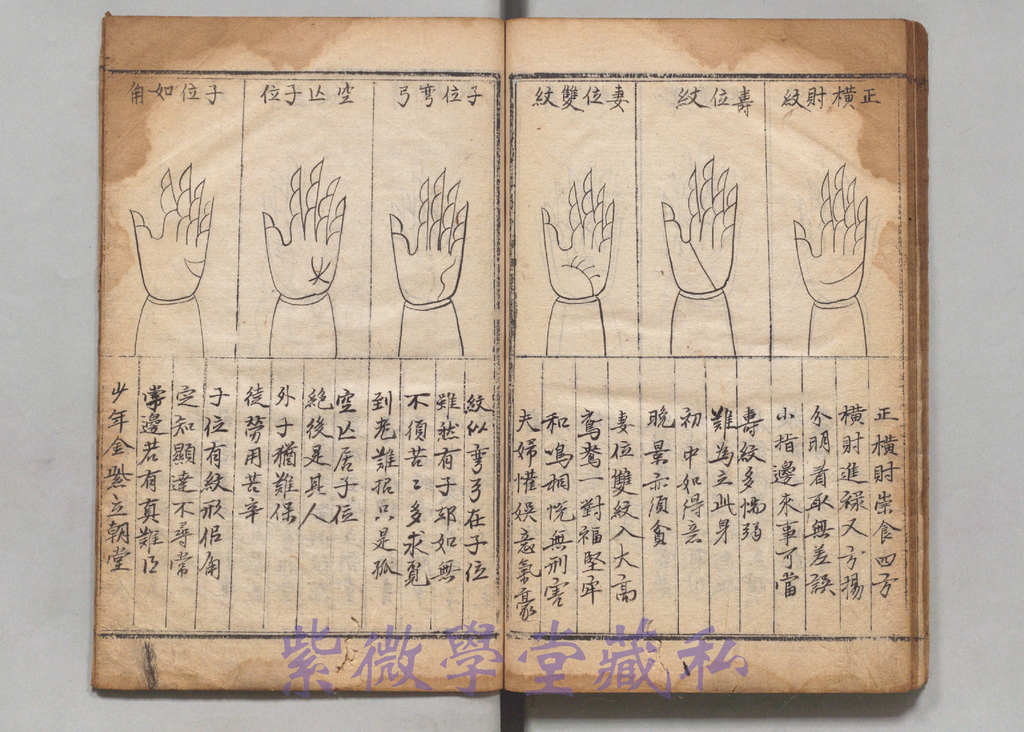 正橫財紋
壽位紋
妻位雙紋
正橫財崇食四方
橫財進祿又揚
分明看取無差誤
小指邊來事可當
壽紋多惰弱
難為立此身
初中如得意
晚景亦須貧
妻位雙紋入大高
鴛鴦一對福堅牢
和鳴相悅無刑害
夫婦懽娛意氣豪
子位彎弓
空亾子位
子位如角
紋似彎弓在子位
雖然有子却如無
不須苦〻多求覓
到老難招只是孤
空亾居子位
絕後是其人
外子猶難保
徒勞用苦辛
子位有紋形侣角
定知顯達不尋常
掌邊若有真難得
少年金紫立朝堂
紫微學堂藏私